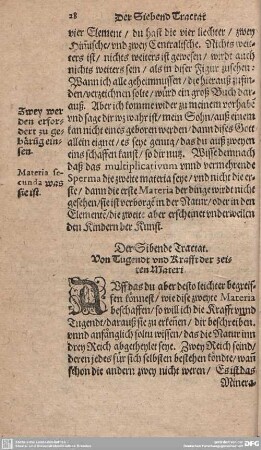 28
Der Siebend Tractat
vier Element / du hast die vier liechter / zwey
Him̃ische / vnd zwey Centralische. Nichts wei-
ters ist / nichts weiters ist gewesen / wirdt auch
nichts weiters sein / als in diser Figur zusehen:
Wann ich alle geheimnussen / die hierauß zufin-
den / verzeichnen solte / würd ein groß Buch dar-
auß. Aber ich komme wider zu meinem vorhabē
vnd sage dir wz wahr ist / mein Sohn / auß einem
kan nichts eines geboren werden dann dises Gott
allein eignet / es seye genug / das du auß zweyen
eins schaffen kanst / so dir nutz. Wisse demnach
daß das multiplicativum vnnd vermehrende
Sperma die zweite materia seye / vnd nicht die er-
ste / dann die erste Materia der dinge wirdt nicht
gesehen / sie ist verborgē in der Natur / oder in den
Elementē / die zweite: aber erscheinet vnderweilen
den Kindern der Kunst.
Zwey wer
den erfor-
dert zu ge-
bärūg ein-
sen.
Materia se-
cunda was
sie ist.
Der Sibende Tractat.
Von Tugendt vnd Krafft der zei-
ten Materi
AVff das du aber desto leichter begreif-
fen könnest / wie diße zweyte Materia
beschaffen / so will ich die Krafft vnnd
Tugendt / darauß sie zu erkeñen / dir beschreiben.
vnnd anfänglich soltu wissen / das die Natur in
drey Reich abgetheylet seye. Zwey Reich seind /
deren jedes für sich selbsten bestehen köndte / wañ
schon die andern zwey nicht weren / Es ist das
Minera-